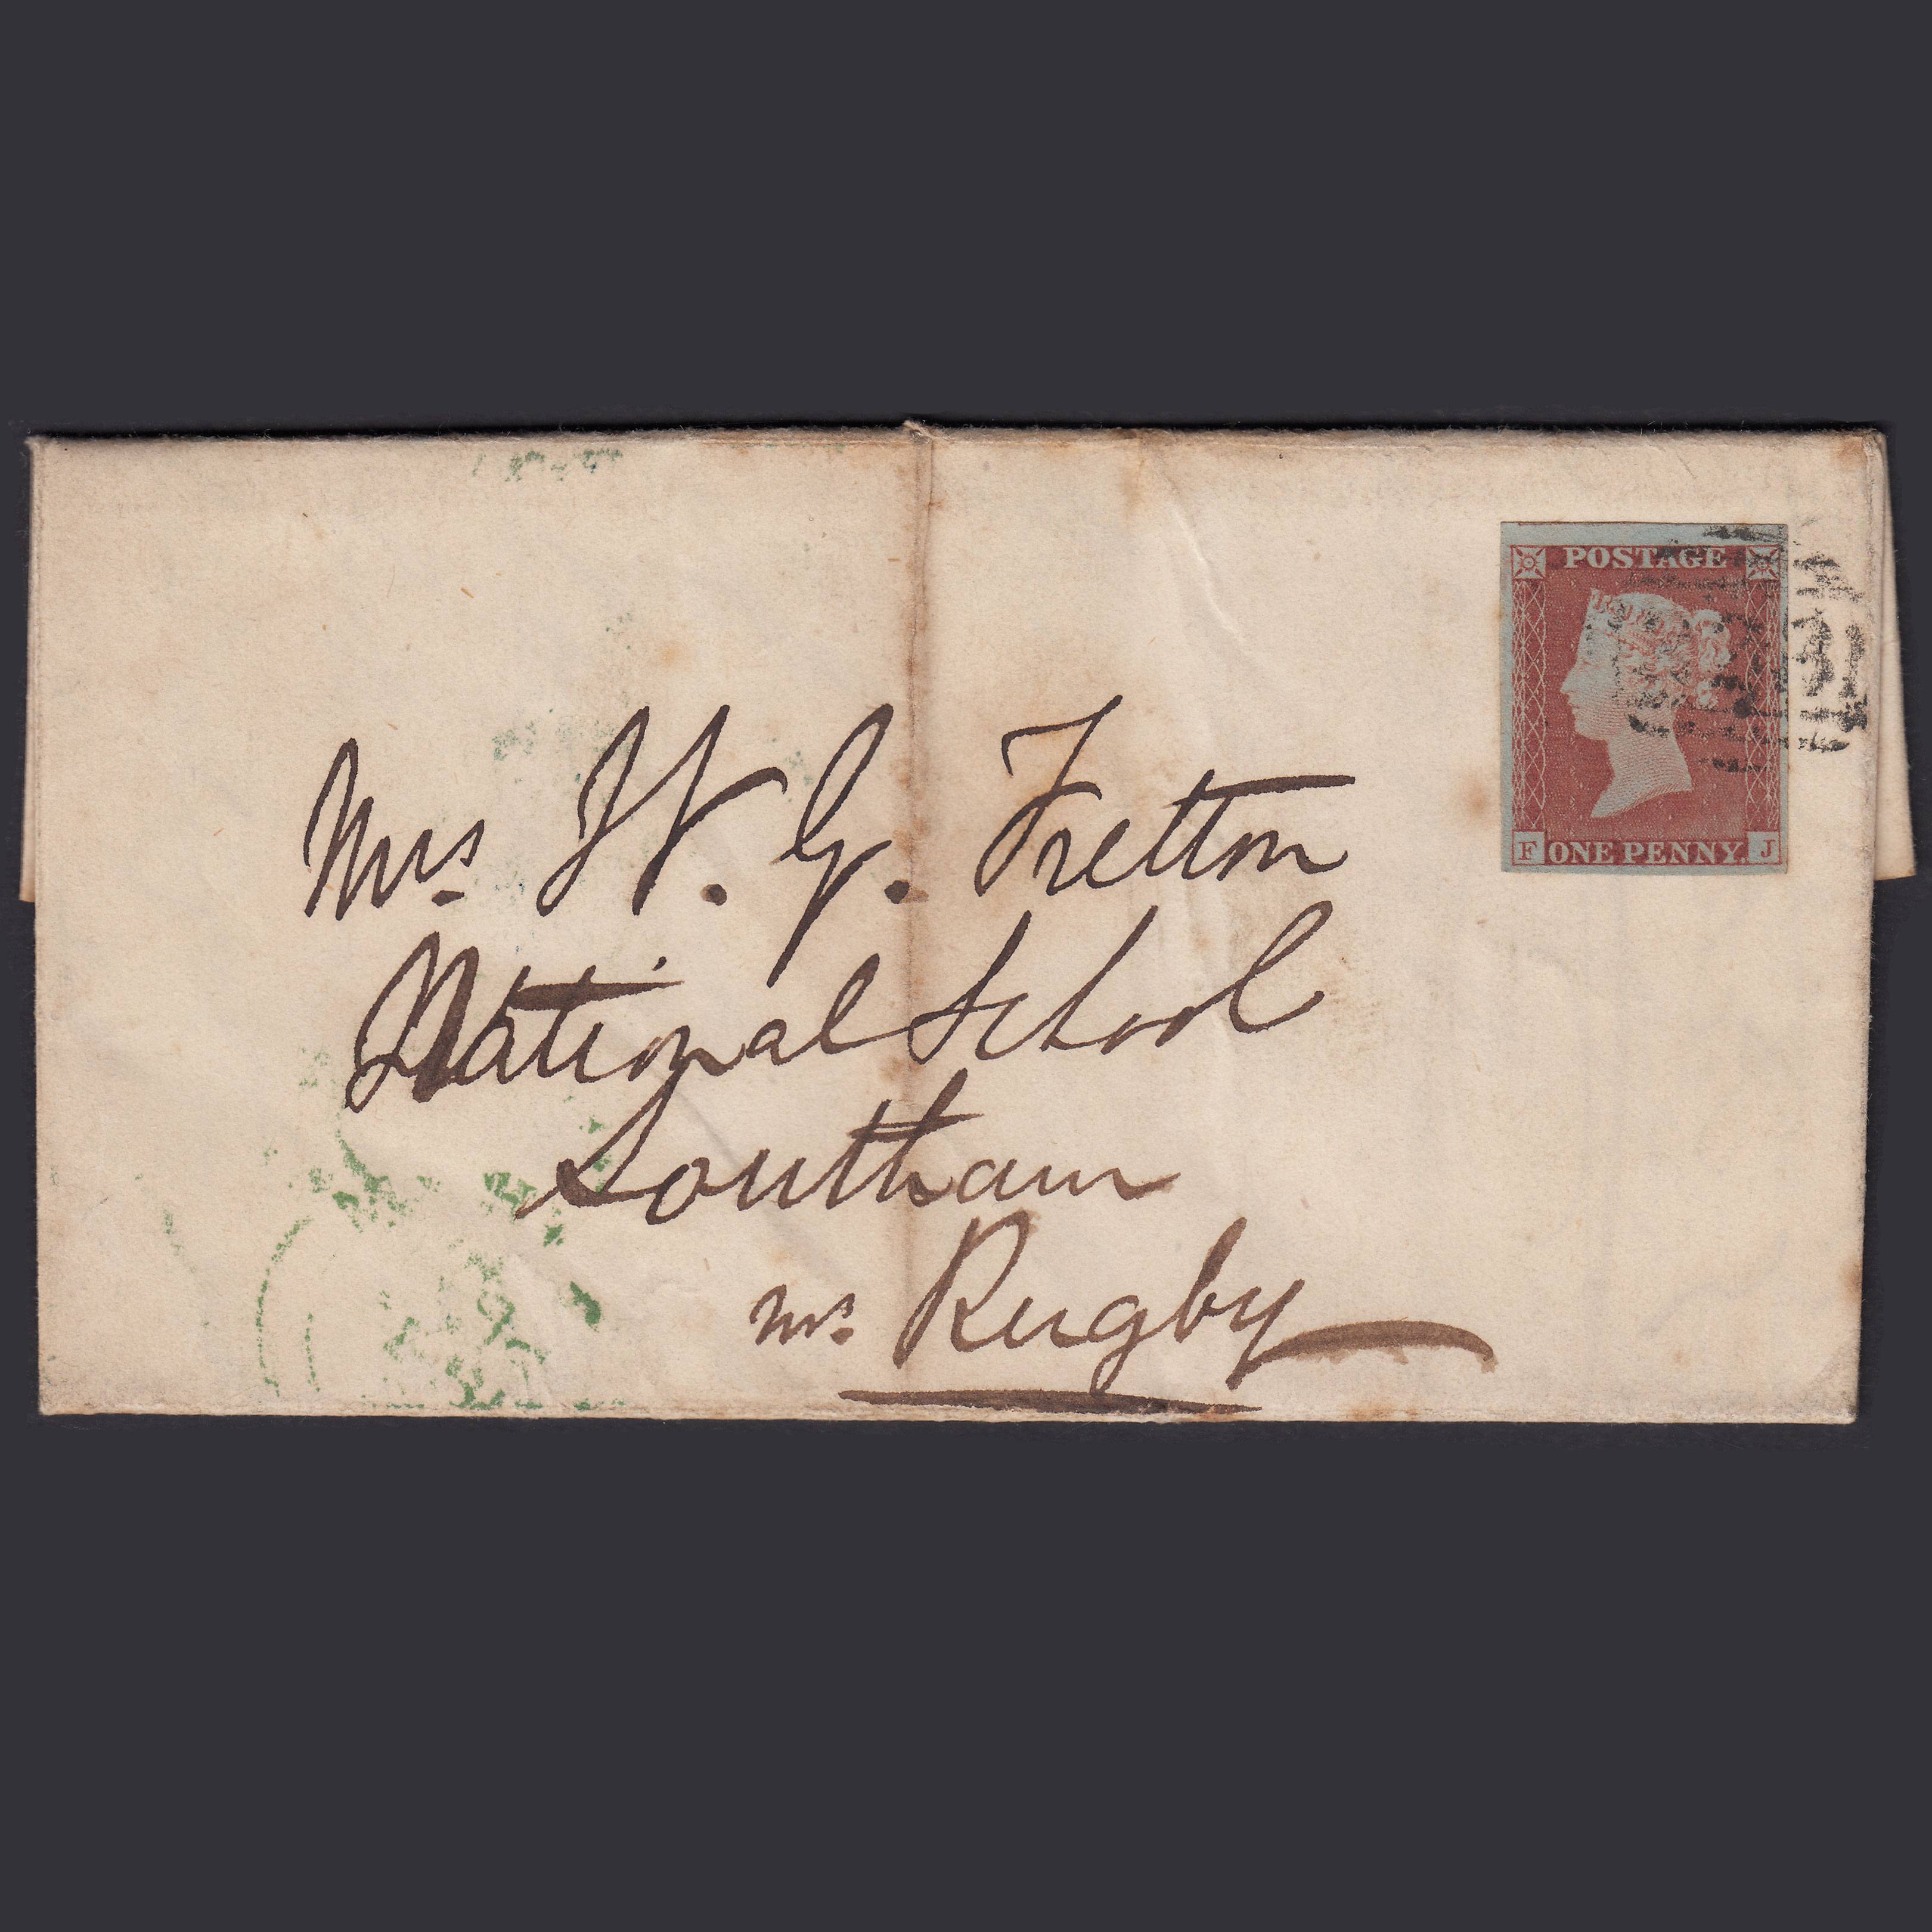 POSTAGE
F ONE PENNY. J
Mrs. W. G. Fretton
National School
Southam
nr. Rugby